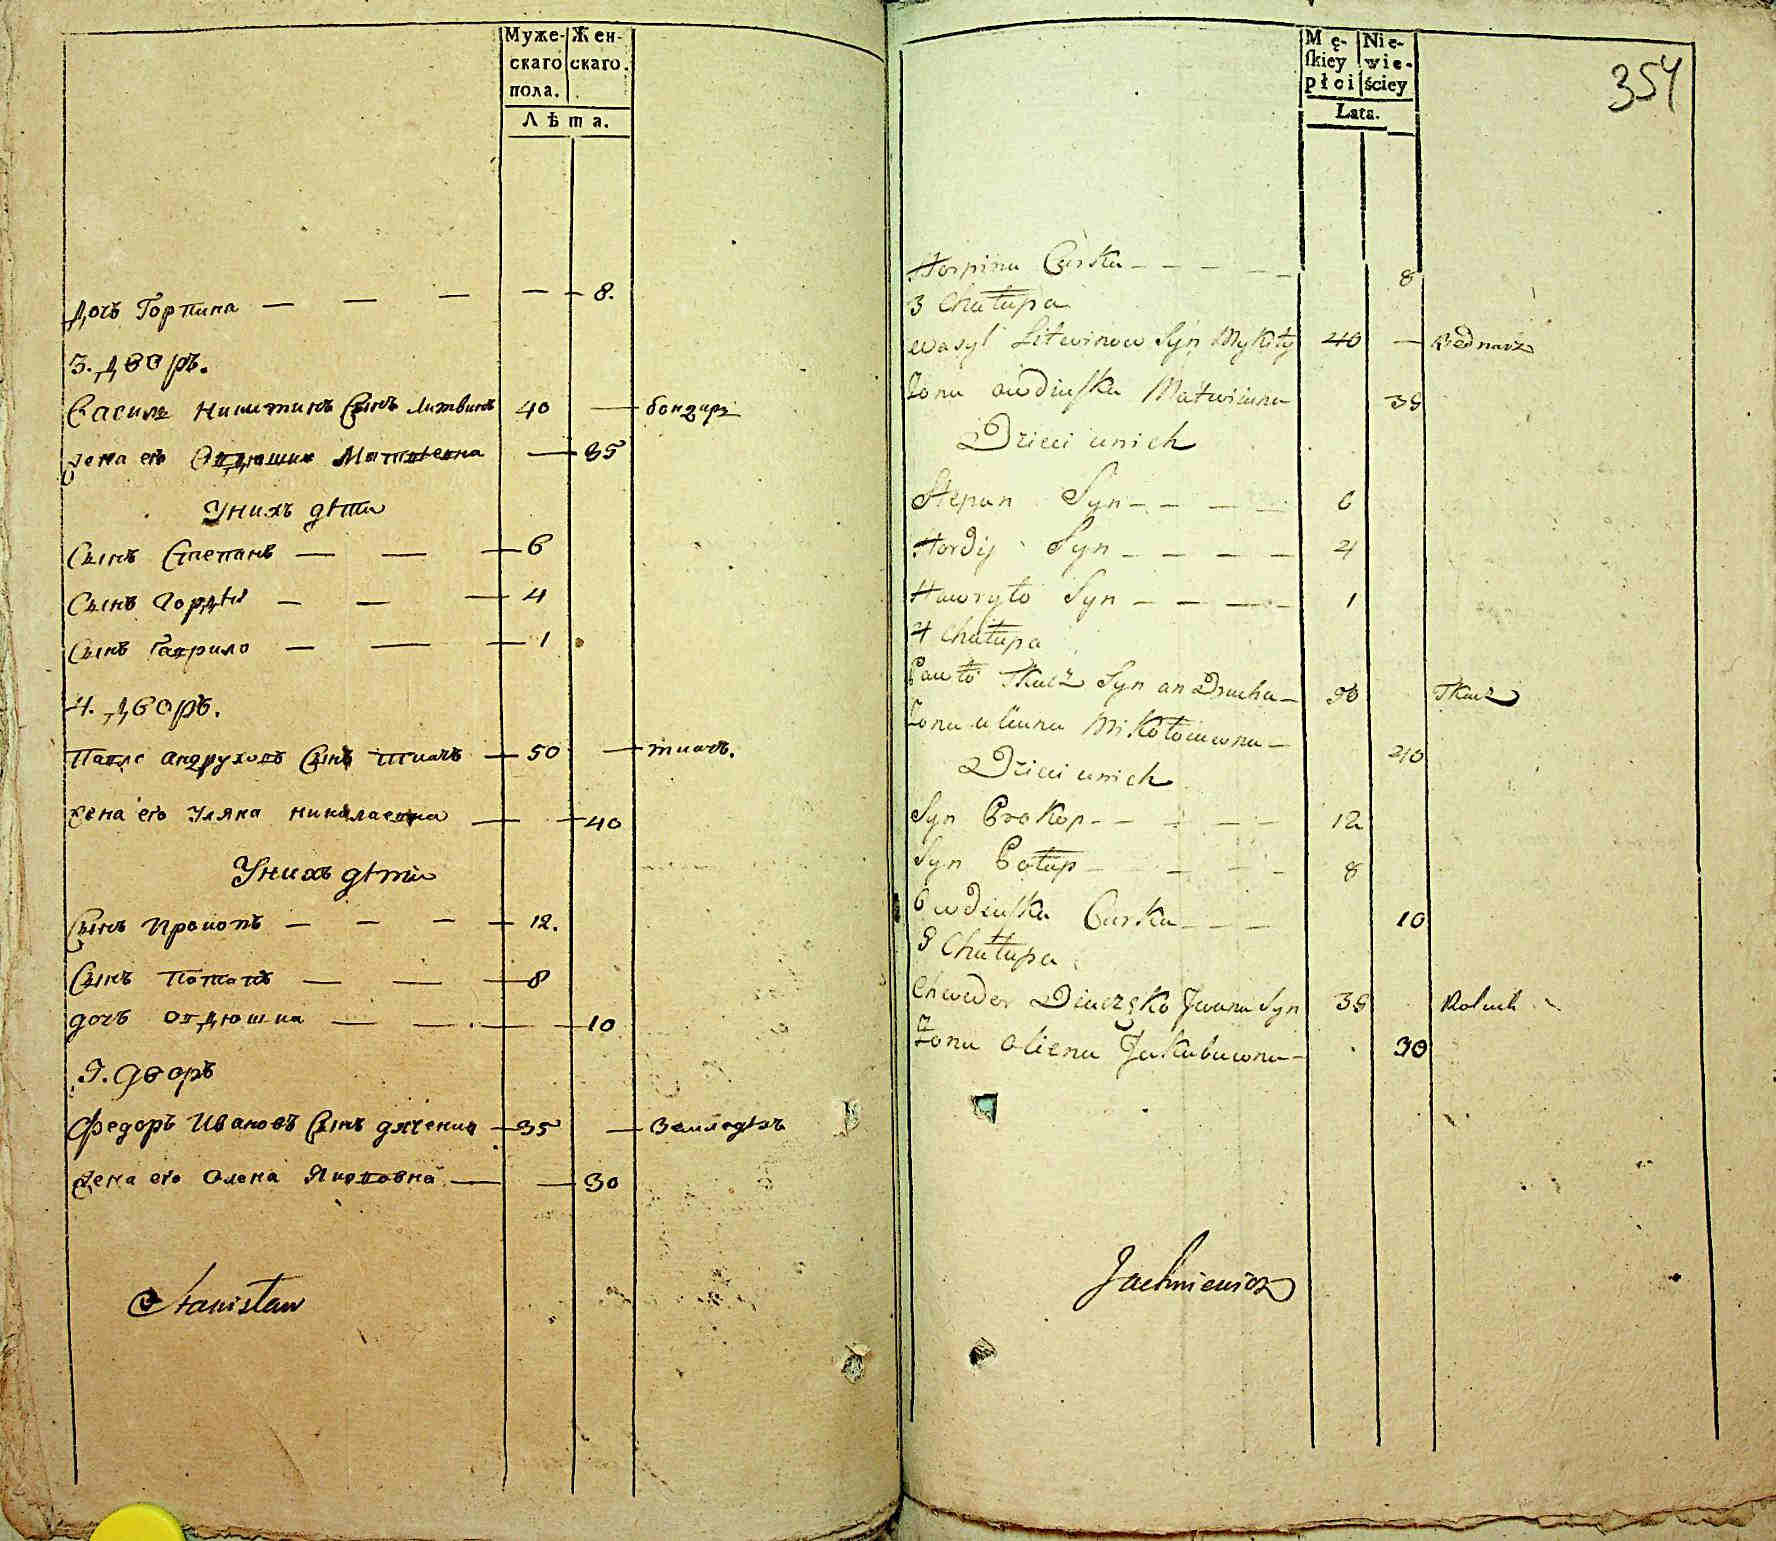 Муже- Жен-
скаго скаго.
пола.
Лѣта.
Дочь Горпина — — — — 8.
3. дворъ.
Василь Никитинъ Сынъ Литвинъ 40 — бондарь
жена его Овдюшка Матвѣевна — 35
У нихъ дѣти
Сынъ Степанъ — — — 6
Сынъ Гордѣй — — — 4
Сынъ Гаврило — — — 1
4. дворъ.
Павло Андруховъ Сынъ Ткачъ — 50 — ткачъ.
жена его Уляна Николаевна — 40
У нихъ дѣти
Сынъ Прокопъ — — — — 12.
Сынъ Потапъ — — — 8
дочь Овдюшка — — — — 10
5. дворъ
Федоръ Ивановъ Сынъ дяченко — 35 — Земледѣлъ
жена его Олена Яковovна — — 30
Stanisław
Mę- Nie-
ſkiey wie-
płci ściey
Lata.
354
Horpina Curka — — — — 8
3 Chałupa
Wasyl Litwinow Syn Mykity 40 — Bednarz
Zona Owdiuſka Matwiiwna 35
Dzieci u nich
Stepan Syn — — — — 6
Hordij Syn — — — — 4
Hawryło Syn — — — — 1
4 Chałupa
Pawło Tkacz Syn Andrucha — 50 Tkacz
Zona Uliana Mikołaiewna — 40
Dzieci u nich
Syn Prokop — — — — 12
Syn Potap — — — — 8
Owdiuſka Curka — — — 10
5 Chałupa
Chwedor Diaczęko Jwana Syn 35 Rolnik
Zona Oliena Jakubuwna — 30
Jachniewicz